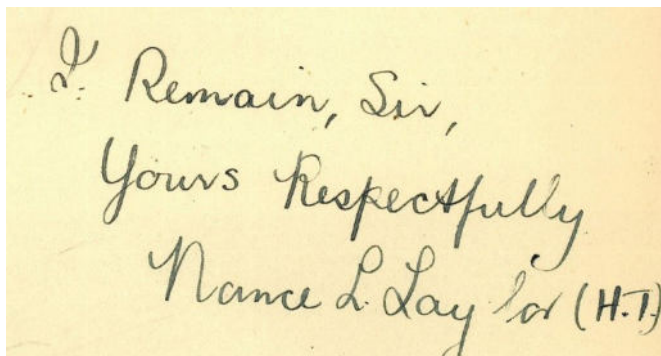 I Remain, Sir,
Yours Respectfully
Nance L. Taylor (H.T.)